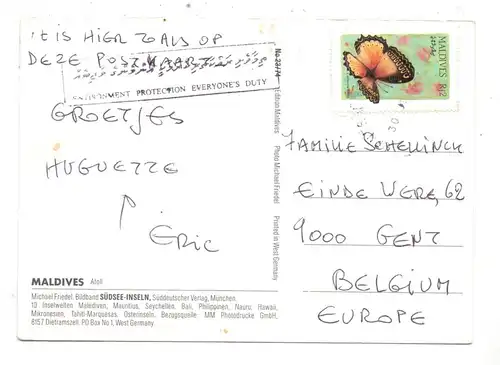 'T IS HIER ZOALS OP
DEZE POSTKAART
ENVIRONMENT PROTECTION EVERYONE'S DUTY
GROETJES
HUGUETTE
ERIC
MALDIVES Atoll
Michael Friedel. Bildband SÜDSEE-INSELN, Süddeutscher Verlag, München.
13 Inselwelten Malediven, Mauritius, Seychellen, Bali, Philippinen, Nauru, Hawaii,
Mikronesien, Tahiti-Marquesas, Osterinseln. Bezugsquelle MM Photodrucke GmbH,
8157 Dietramszell. PO Box No 1, West Germany.
Edition Maldives Photo Michael Friedel Printed in West Germany
MALDIVES
Rf2
FAMILIE SCHELLINCK
EINDE WERE, 62
9000 GENT
BELGIUM
EUROPE